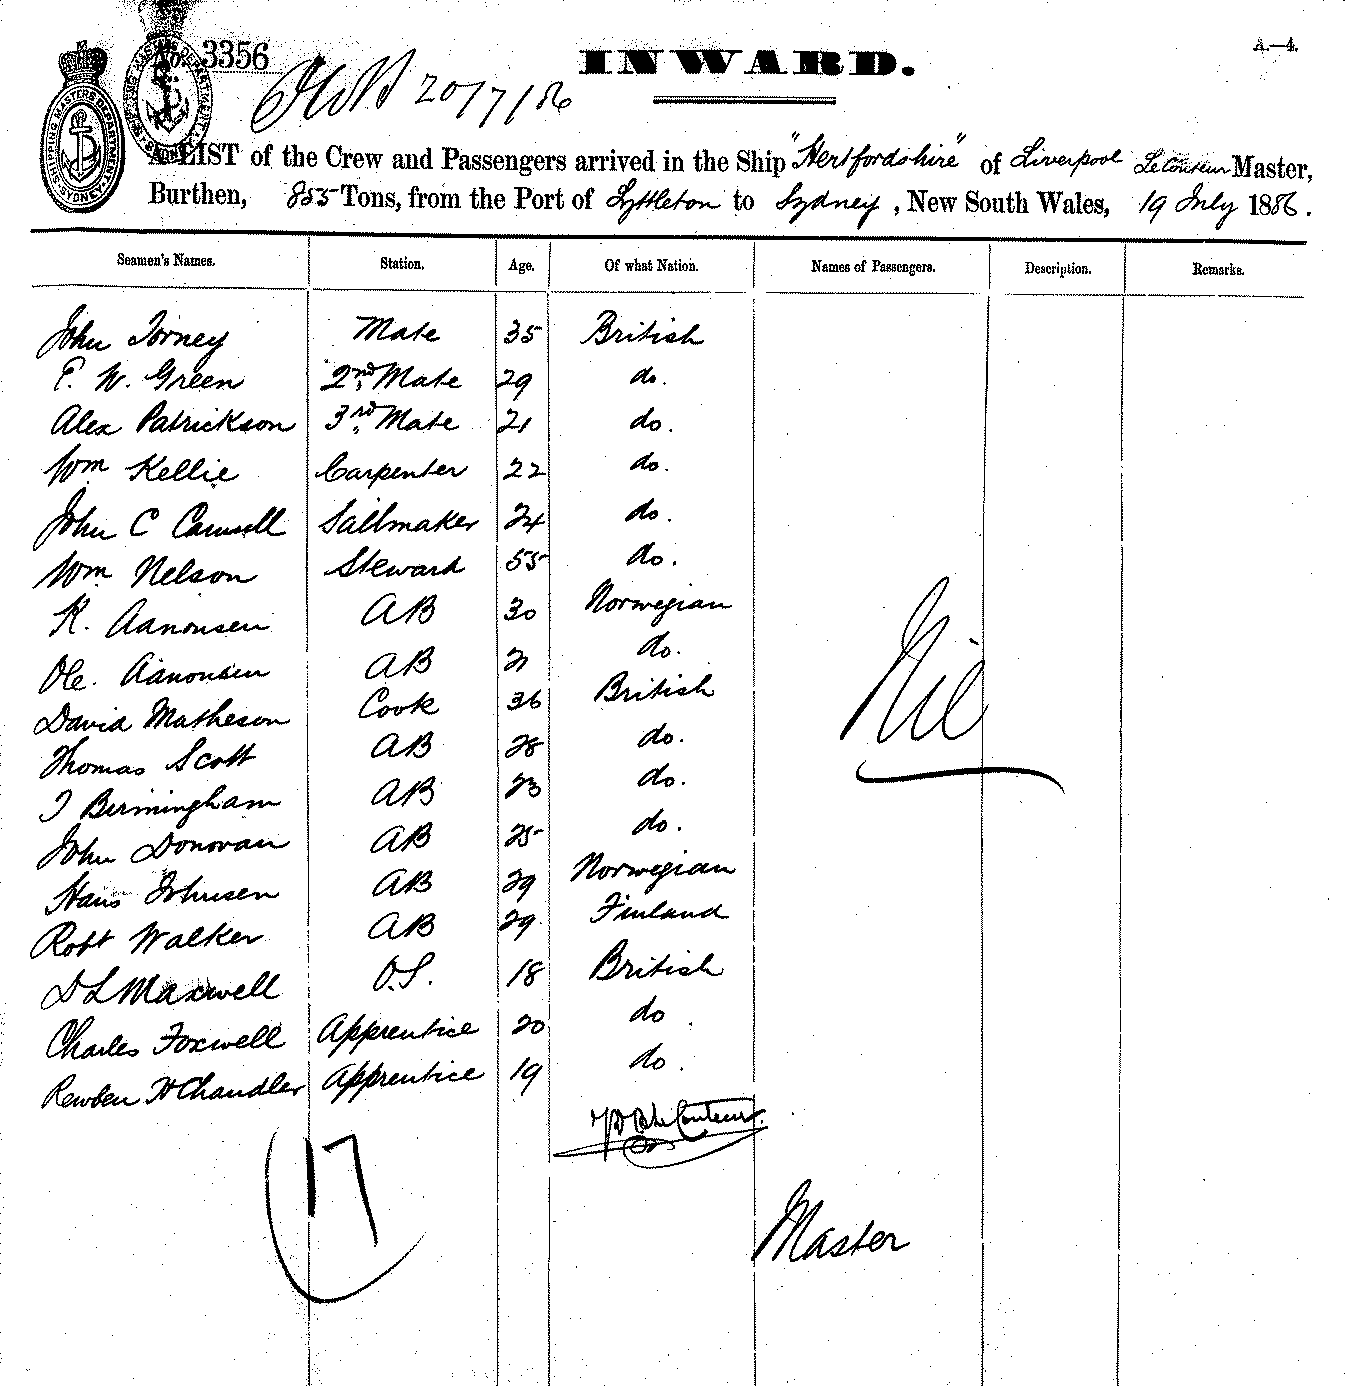 No. 3356
INWARD.
A.—4.
20/7/86
A LIST of the Crew and Passengers arrived in the Ship "Hertfordshire" of Liverpool Le Couteur Master,
Burthen, 855 Tons, from the Port of Lyttleton to Sydney, New South Wales, 19 July 1886.
Seamen's Names. Station. Age. Of what Nation. Names of Passengers. Description. Remarks.
John Torney Mate 35 British
E. W. Green 2nd Mate 29 do.
Alex Patrickson 3rd Mate 21 do.
Wm Kellie Carpenter 22 do.
John C Sailmaker 24 do.
Wm Nelson Steward 55 do.
K. Aanonsen AB 30 Norwegian
Ole. Aanonsen AB 21 do.
David Matheson Cook 36 British
Thomas Scott AB 28 do.
J Birmingham AB 23 do.
John Donovan AB 25 do.
Hans Johnsen AB 29 Norwegian
Robt Walker AB 29 Finland
D L Maxwell O.S. 18 British
Charles Foxwell Apprentice 20 do.
Rewben H Chandler Apprentice 19 do.
Nil
Le Couteur.
17
Master
SHIPPING MASTERS DEPARTMENT
SYDNEY